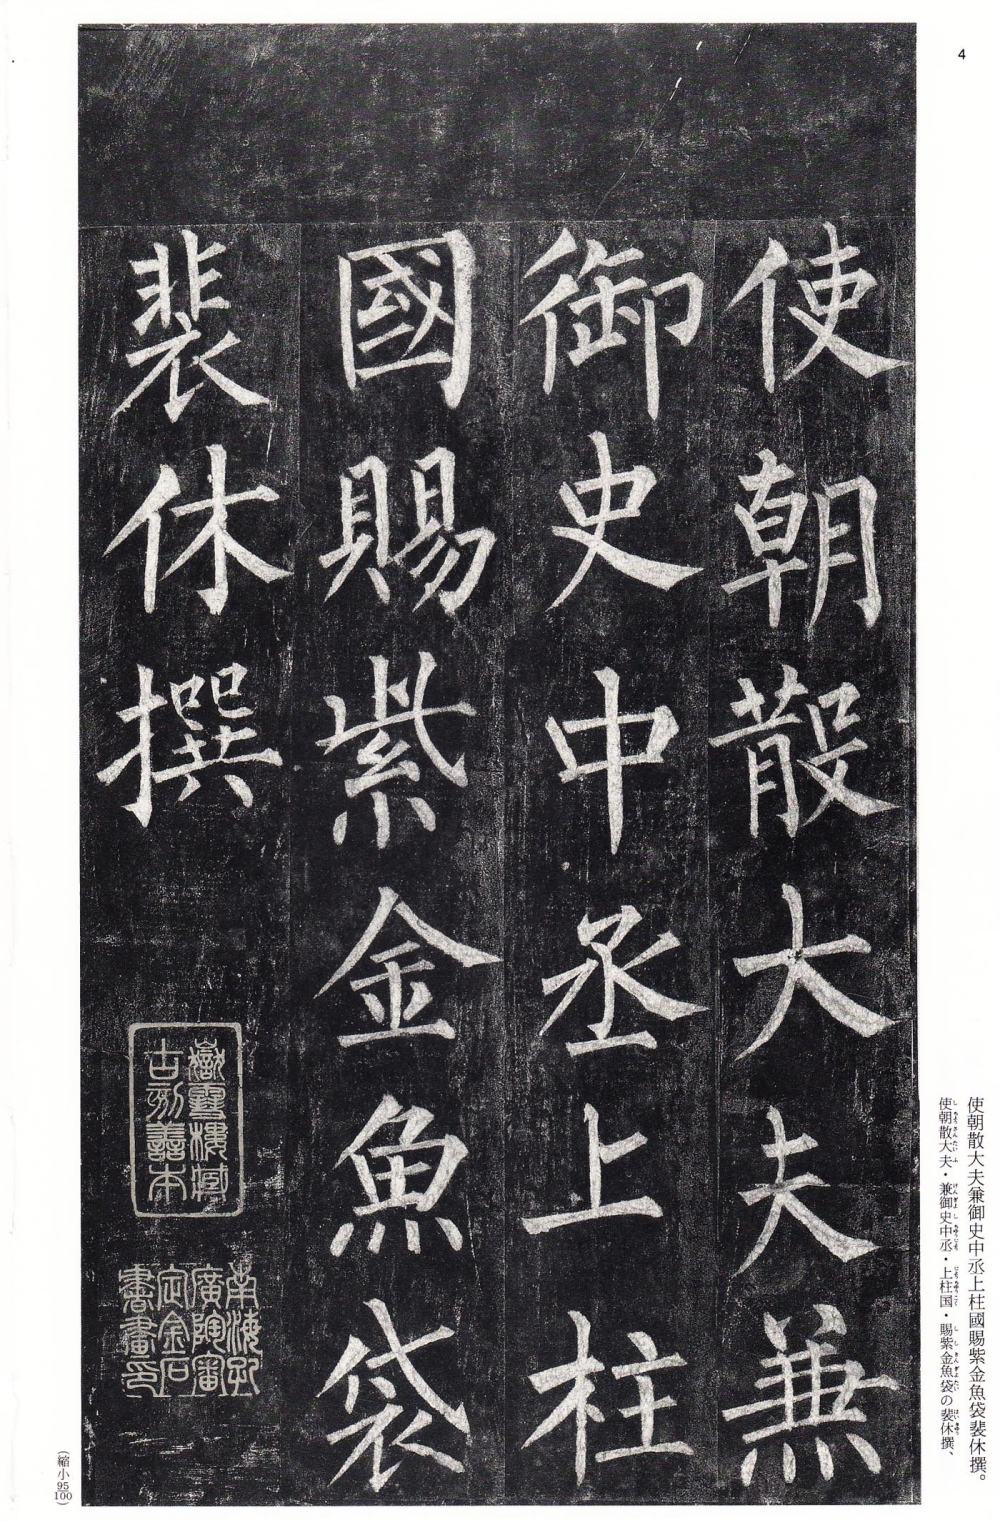 4
使朝散大夫兼
御史中丞上柱
國賜紫金魚袋
裴休撰
嶽雪樓藏
古刻善本
南海孔
廣陶審
定金石
書畫印
使朝散大夫兼御史中丞上柱國賜紫金魚袋裴休撰。
使朝散大夫・兼御史中丞・上柱国・賜紫金魚袋の裴休撰、
(縮小95/100)